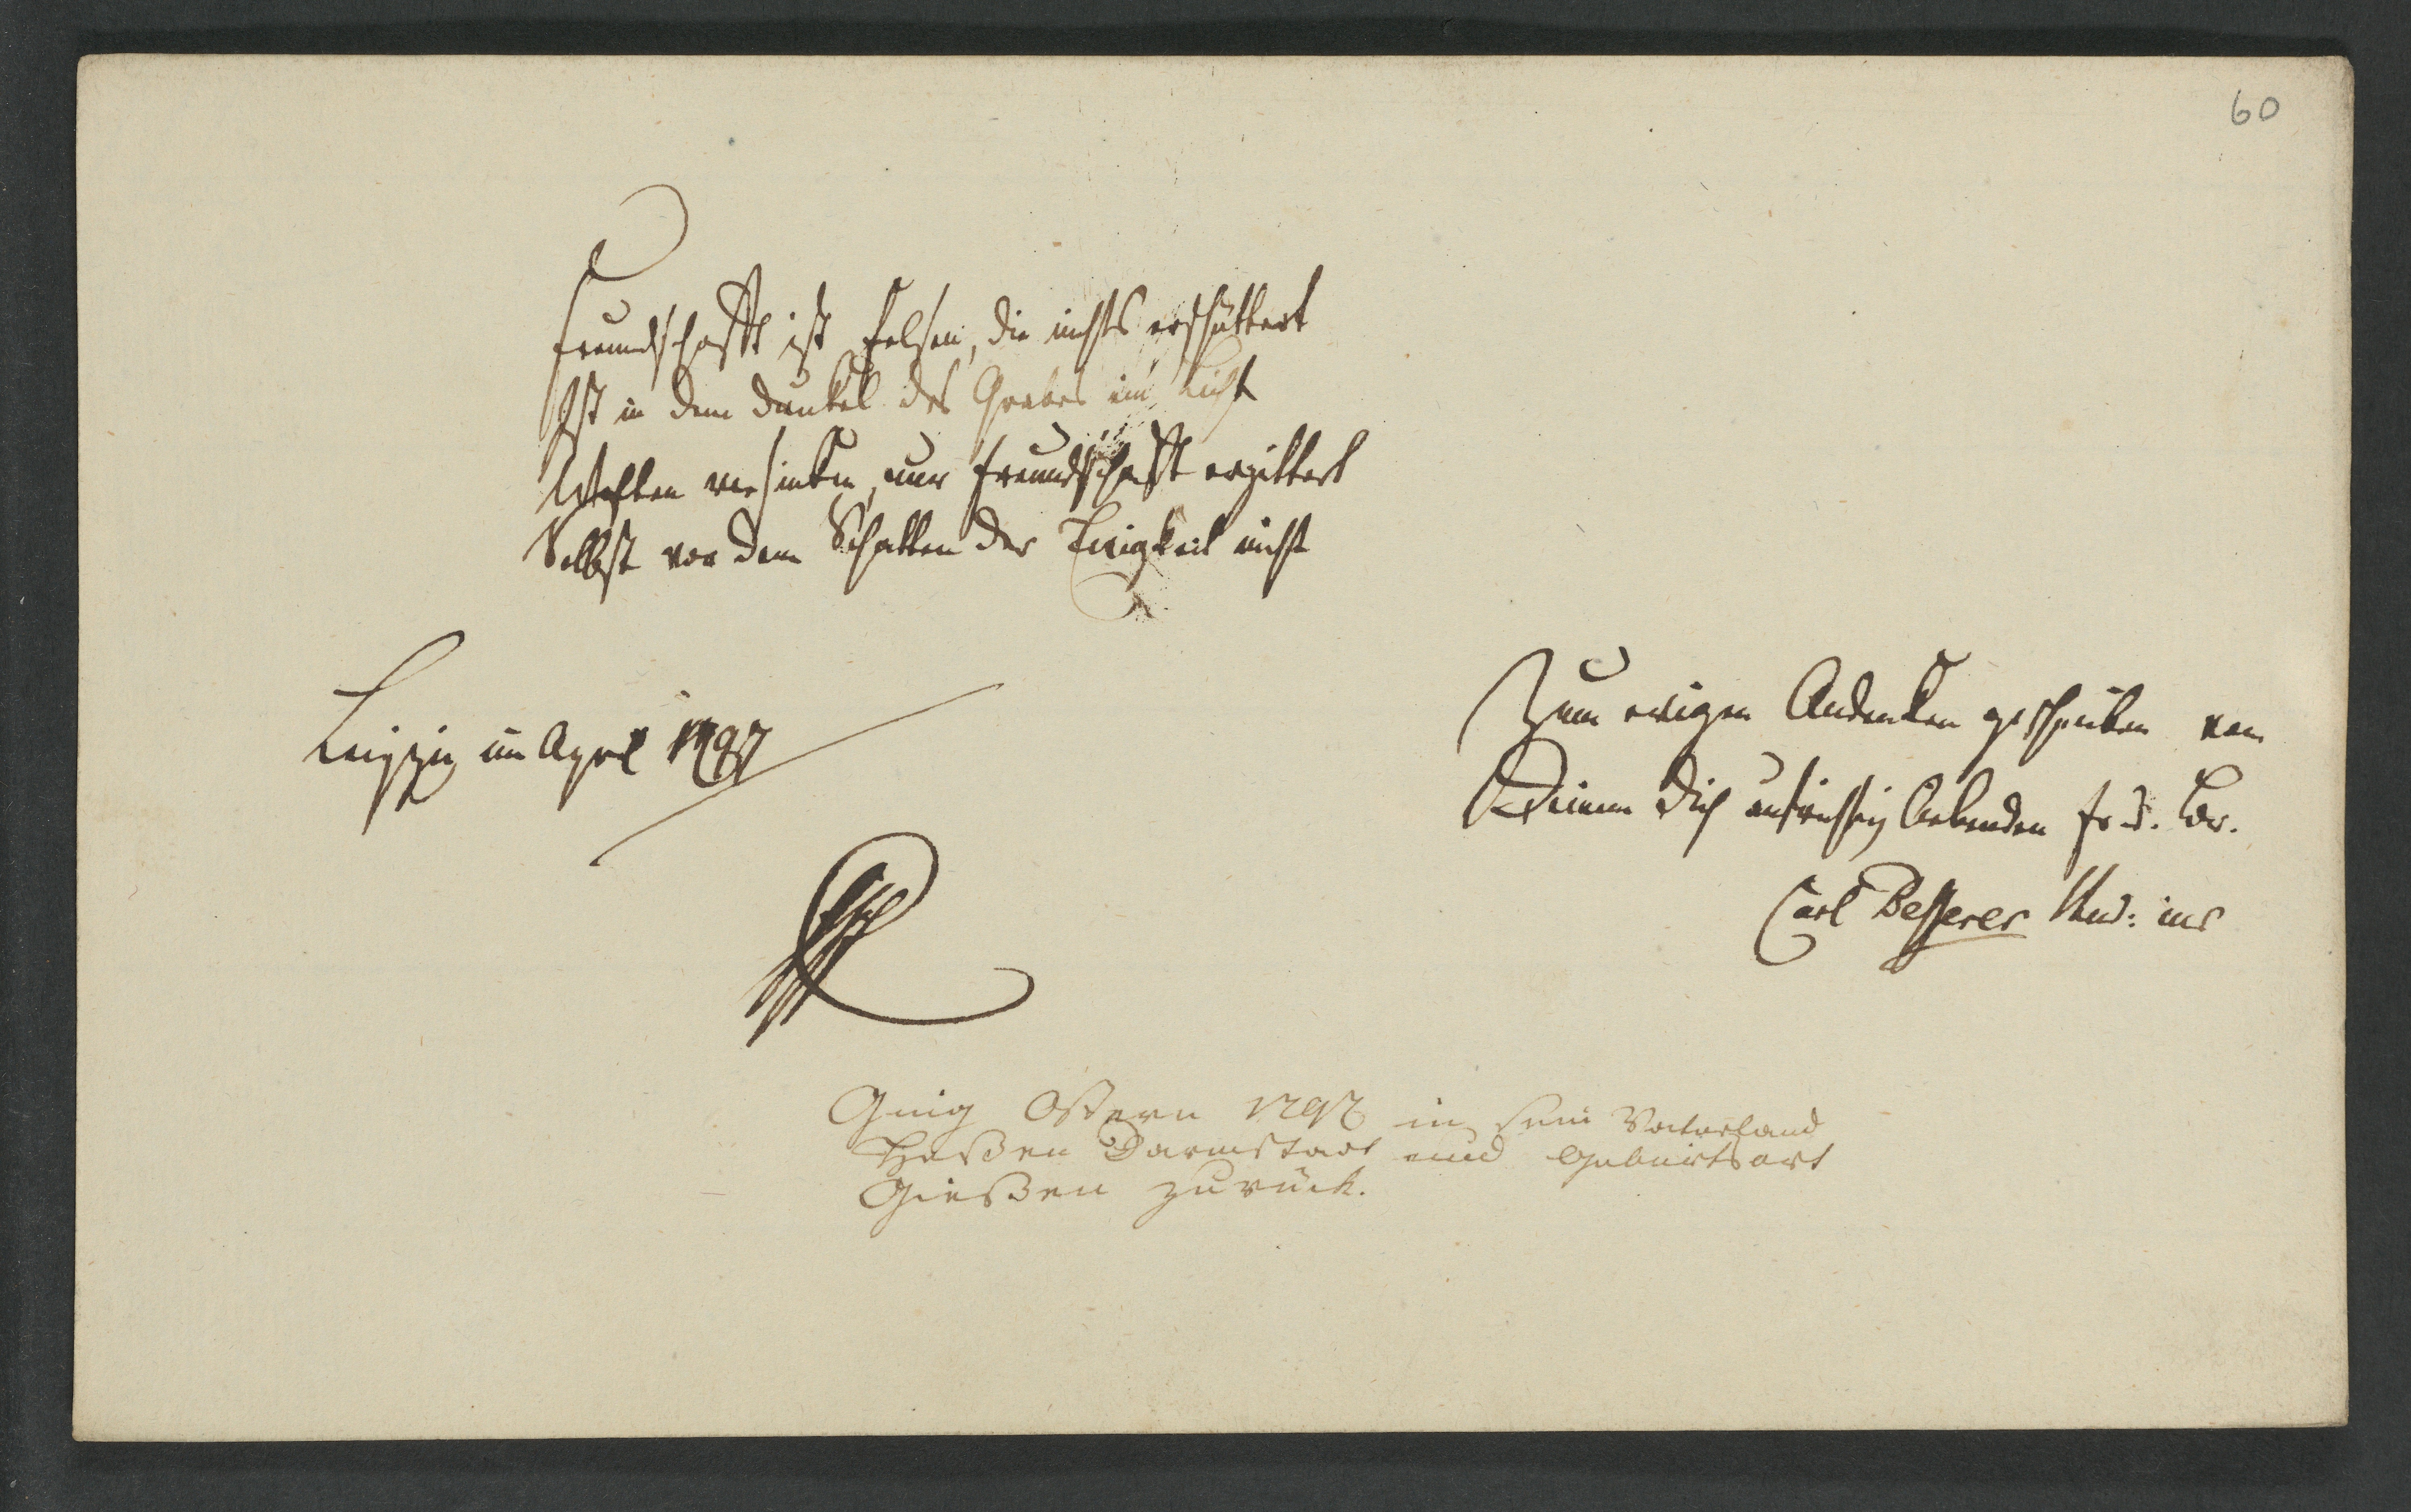 60
Freundschafft ist Felsen, die nichts erschüttert
Ist in dem Dunkel des Grabes ein Licht
Welten versinken, nur Freundschafft erzittert
Selbst vor dem Schatten der Ewigkeit nicht
Leipzig im April 1797
Zum ewigen Andenken geschrieben von
Deinem Dich aufrichtig liebenden Frd. Br.
Carl Besserer Stud: iur
Ging Ostern 1797 in sein Vaterland
Heßen Darmstadt und Geburtsort
Gießen zurück.